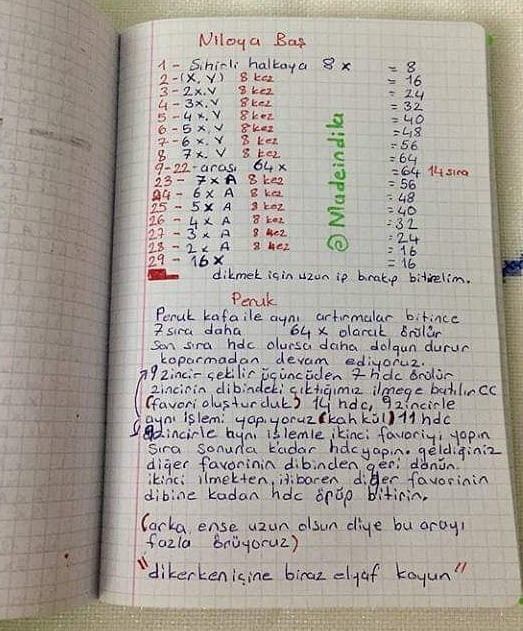 Niloya Baş
1 - Sihirli halkaya 8 x = 8
2-(X, V) 8 kez = 16
3 - 2x.V 8 kez = 24
4 - 3x.V 8 kez = 32
5 - 4x.V 8 kez = 40
6 - 5x.V 8 kez = 48
7 - 6x.V 8 kez = 56
8 7x.V 8 kez = 64
9-22-arası 64x = 64 14 sıra
23 - 7xA 8 kez = 56
24 - 6xA 8 kez = 48
25 - 5xA 8 kez = 40
26 - 4xA 8 kez = 32
27 - 3xA 8 kez = 24
28 - 2xA 8 kez = 16
29 - 16x = 16
dikmek için uzun ip bırakıp bitirelim.
@Madeindila
Peruk
Peruk kafa ile aynı artırmalar bitince
7 sıra daha 64 x olarak örülür
Son sıra hdc olursa daha dolgun durur
koparmadan devam ediyoruz.
9 zincir çekilir üçüncüden 7 hdc örülür
zincirin dibindeki çıktığımız ilmeğe batılır CC
(favori oluşturduk) 14 hdc, 9 zincirle
aynı işlemi yapıyoruz (kahkül) 11 hdc
9 zincirle aynı işlemle ikinci favoriyi yapın
Sıra sonuna kadar hdc yapın. geldiğiniz
diğer favorinin dibinden geri dönün.
ikinci ilmekten, itibaren diğer favorinin
dibine kadar hdc örüp bitirin.
(arka ense uzun olsun diye bu arayı
fazla örüyoruz)
"dikerken içine biraz elyaf koyun"